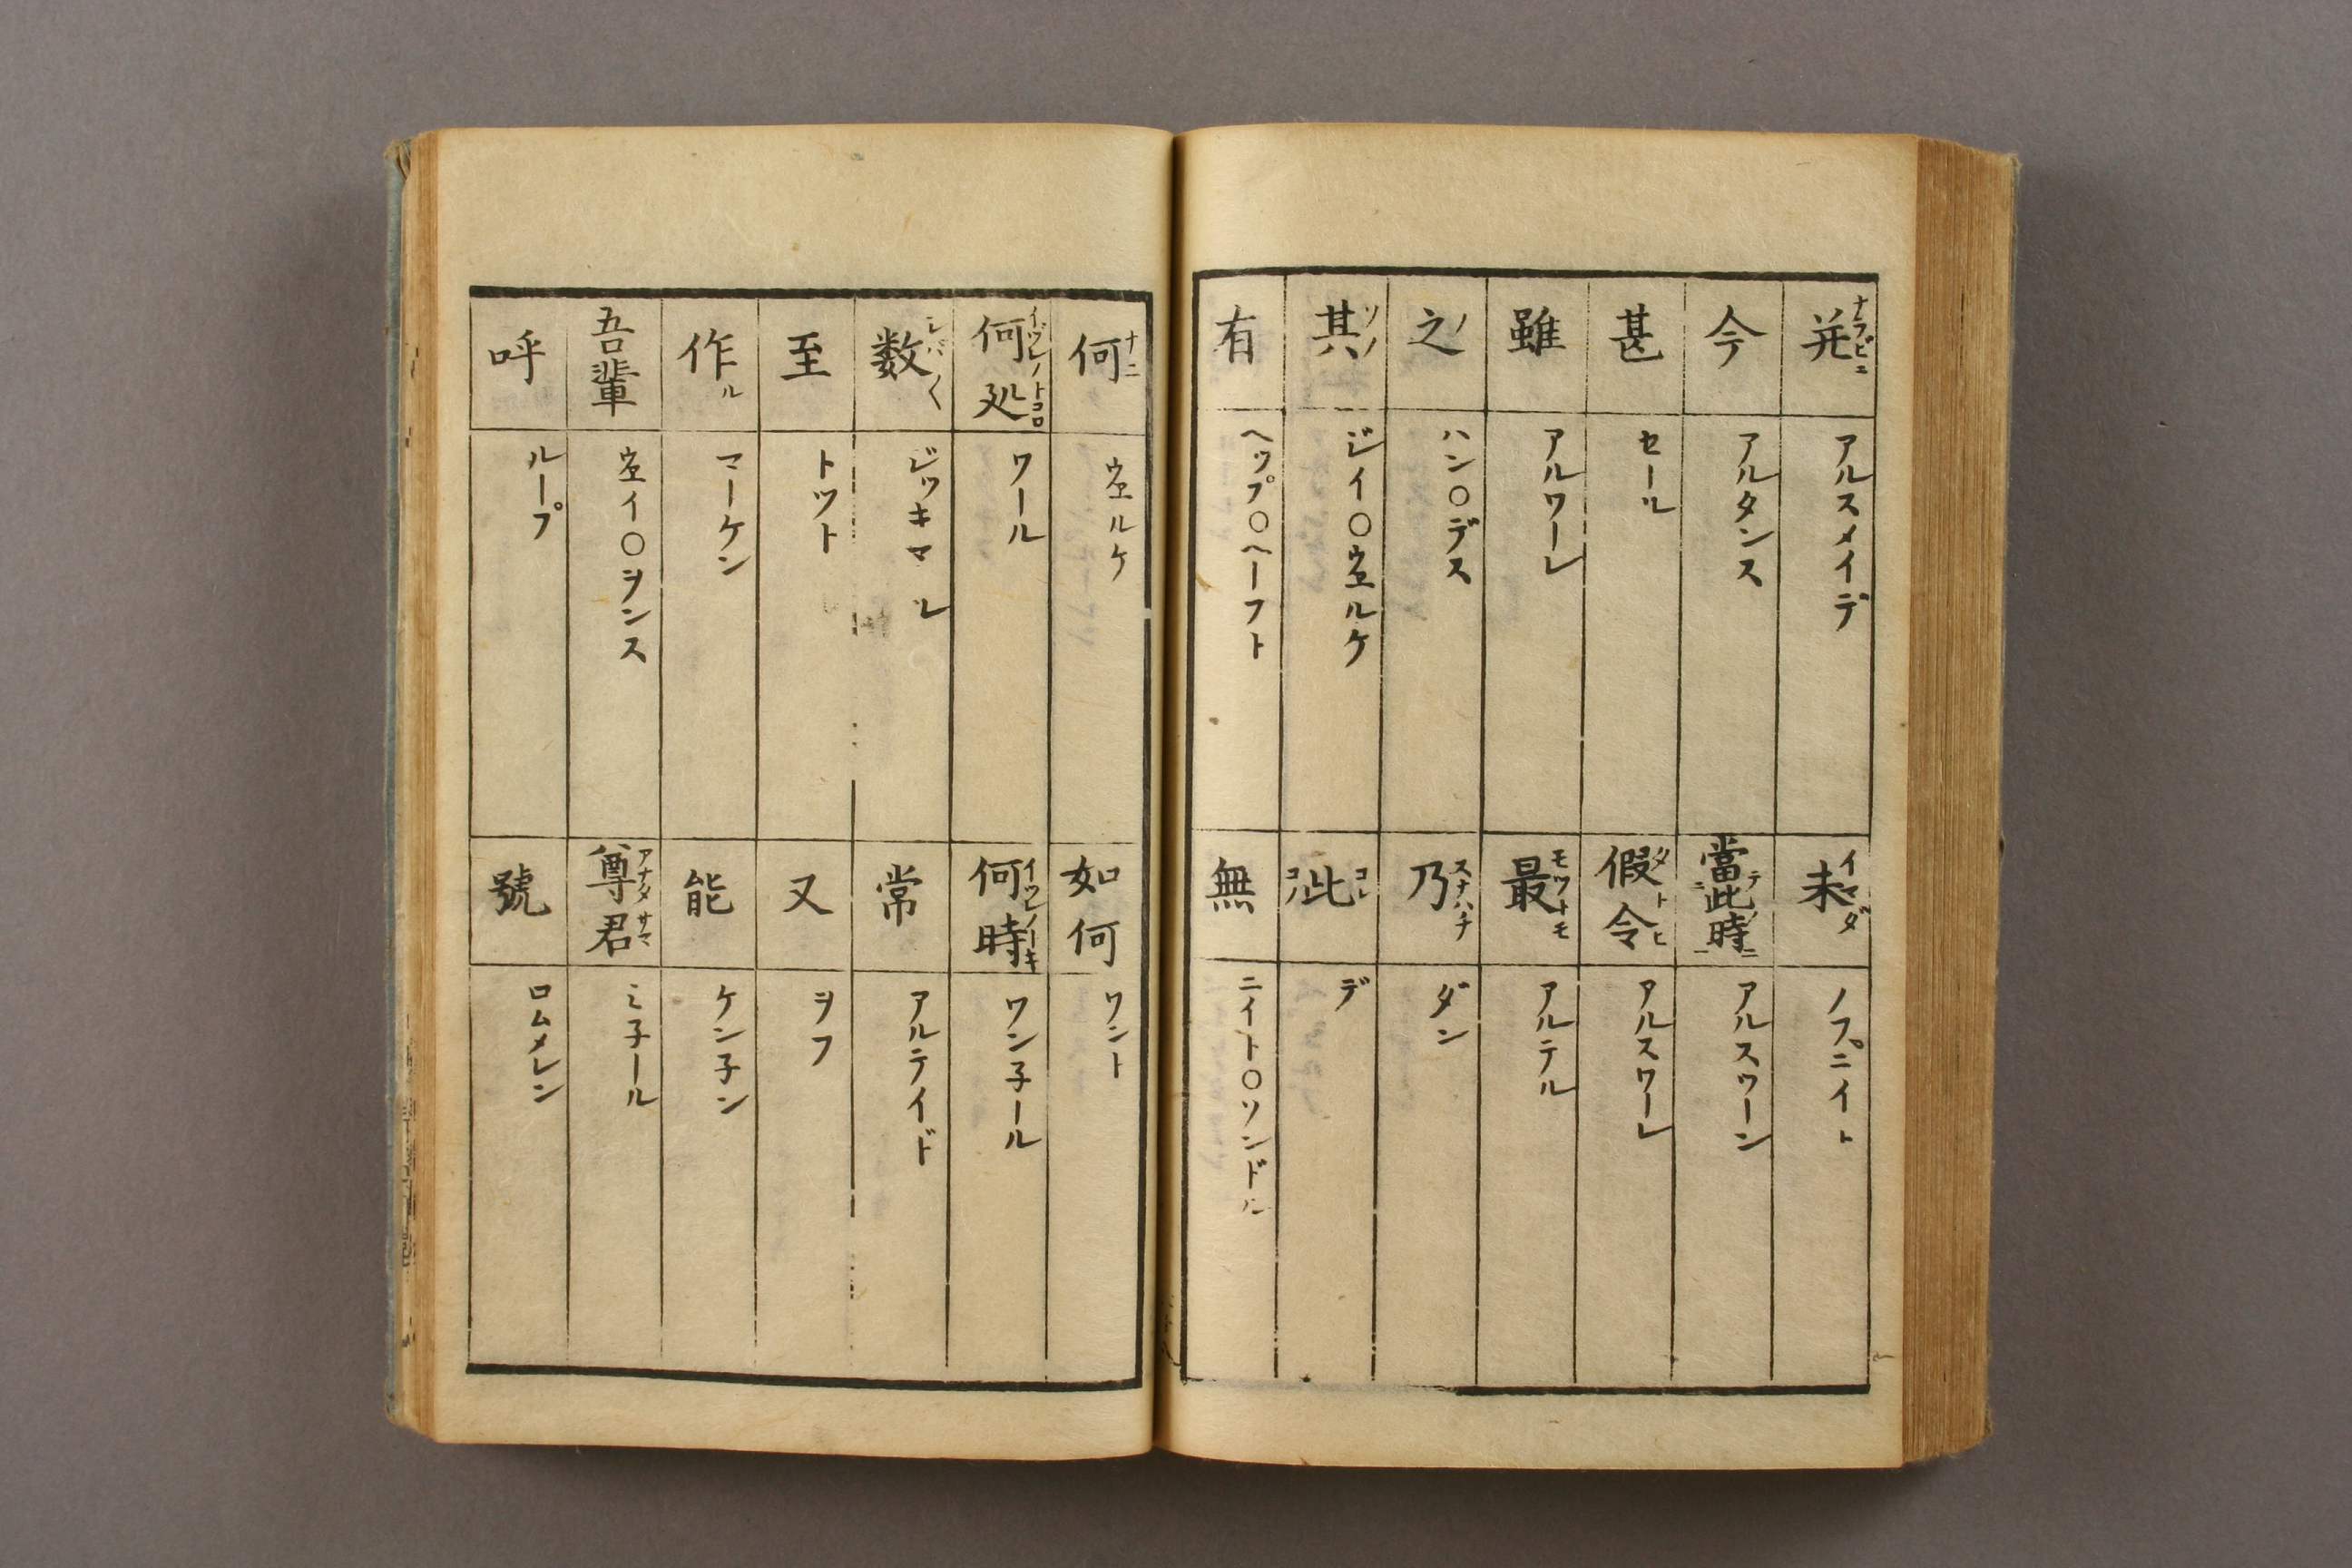 并 ナラビニ
アルスメイデ
今
アルタンス
甚
セール
雖
アルワーレ
之 ノ
ハン〇デス
其 ソノ
ジイ〇ヱルケ
有
ヘップ〇ヘーフト
未 イマダ
ノフニイト
當此時
アルスワーン
假令 タトヒ
アルスワーレ
最 モツトモ
アルテル
乃 スナハチ
ダン
此 コレ
デ
無
ニイト〇ソンドル
何 ナニ
ヱルケ
何処 イヅレノトコロ
ワール
数 シバ〱
ジッキマル
至
トツト
作ル
マーケン
吾輩
ヱイ〇ヲンス
呼
ループ
如何
ワント
何時 イヅレノトキ
ワン子ール
常
アルテイド
又
ヲフ
能
ケン子ン
尊君 アナタサマ
ミ子ール
號
ロムメレン